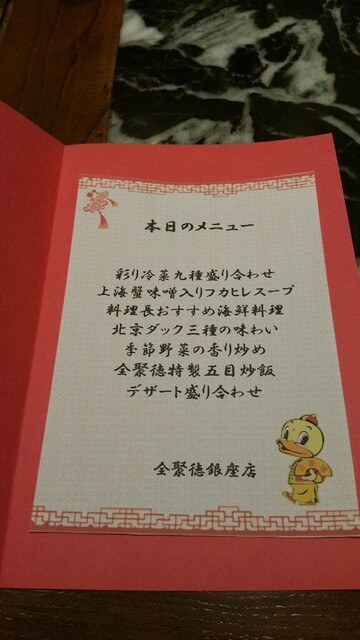 本日のメニュー
彩り冷菜九種盛り合わせ
上海蟹味噌入りフカヒレスープ
料理長おすすめ海鮮料理
北京ダック三種の味わい
季節野菜の香り炒め
全聚徳特製五目炒飯
デザート盛り合わせ
全聚徳銀座店